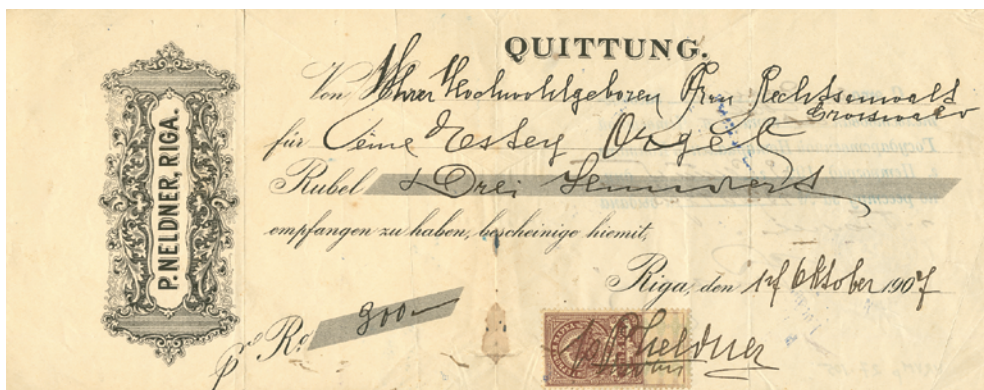 P. NELDNER, RIGA.
QUITTUNG.
Von Ihrer Hochwohlgeboren Frau Rechtsanwald
Grosswald
für eine Estey Orgel
Rubel Drei Hundert
empfangen zu haben, bescheinige hiemit,
Riga, den 17 Oktober 1907
pr Ro 300—
P Neldner